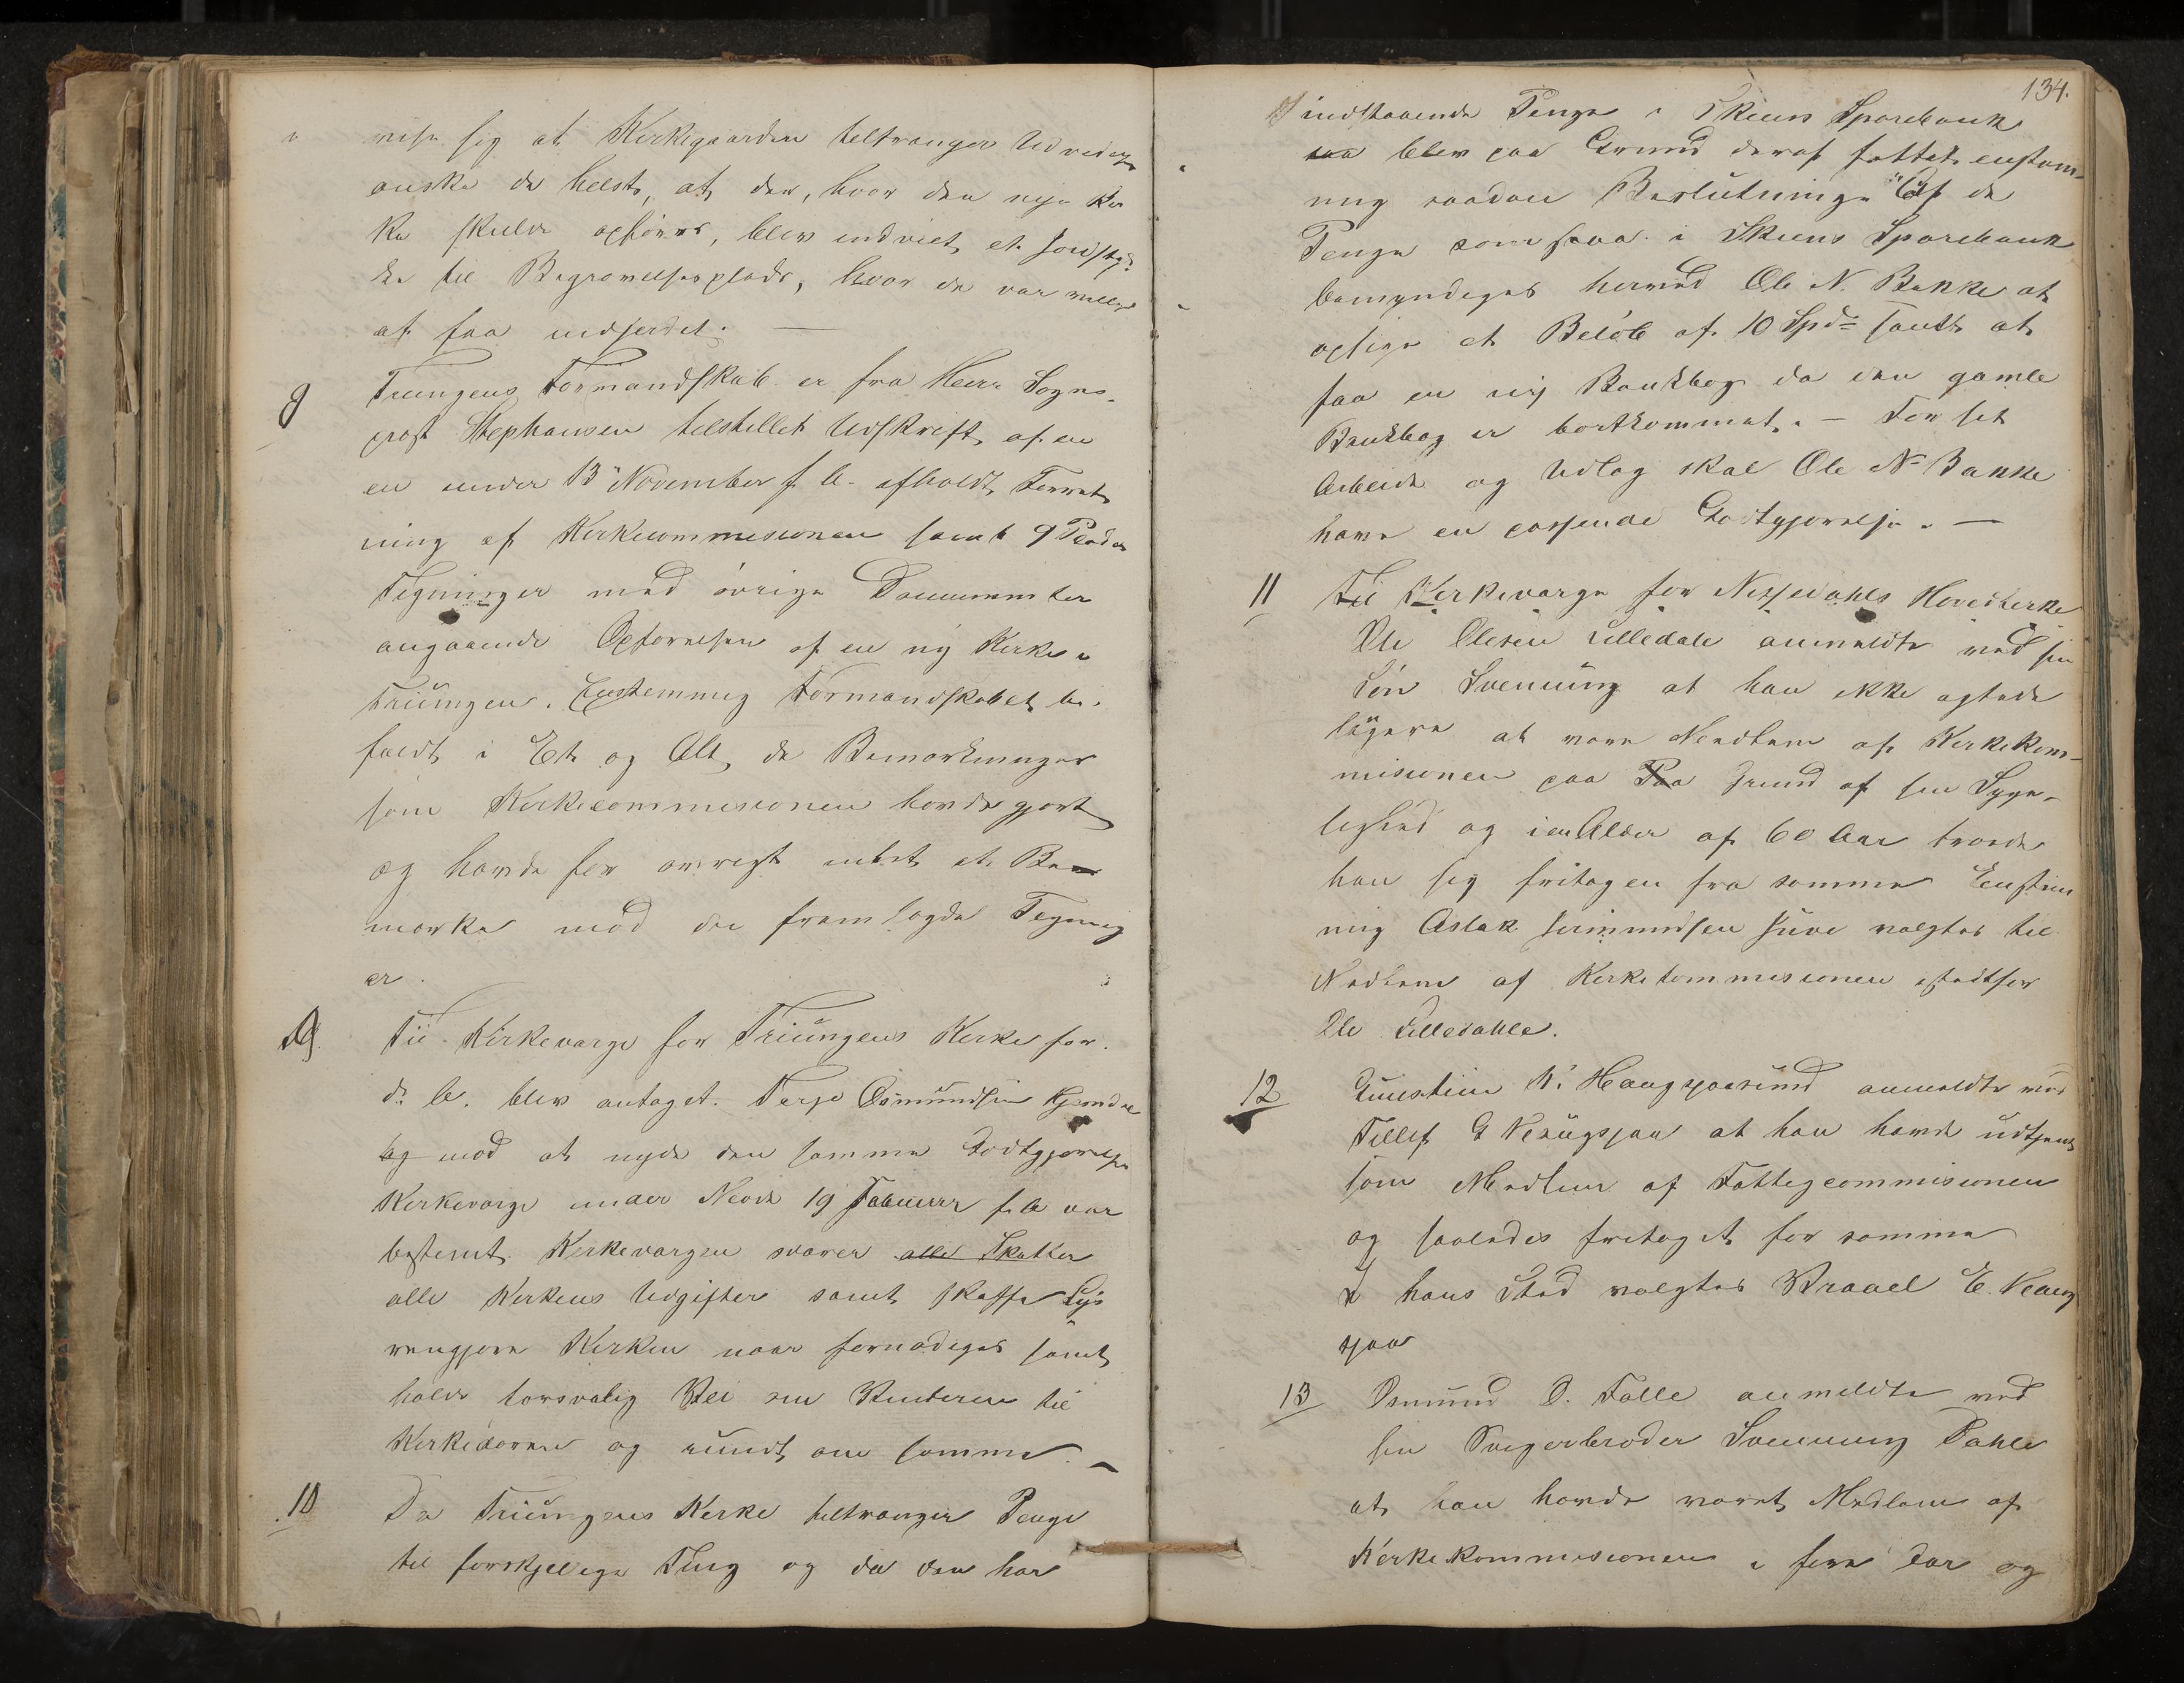 vise sig at Kirkegaarden tiltrænger Udvidelse
ønske de helst, at der, hvor den nye Kir
ke skulde opføres, blev indviet et Jordstyk
ke til Begravelsesplads, hvor de var villige
at faa indjerdet. —
8 Treungens Formandskab er fra Herr Sogne-
præst Stephansen tilstillet Udskrift af en
en under 13de November f. A. afholdt Forret
ning af Kirkecommisionen samt 9
Tegninger med övrige Documenter
angaaende Opförelsen af en ny Kirke i
Treüngen. Eenstemmig Formandskabet bi-
faldt i Et og Alt de Bemærkninger
som Kirkecommisionen havde gjort
og havde for øvrigt intet at Be
mærke mod de fremlagde Tegning
er.
9. Til Kirkeværge for Treüngens Kirke for
d. A. blev antaget Terje Osmundsen
og mod at nyde den samme Godtgjørelse
Kirkeværge under 19 Februar f. A. var
bestemt. Kirkeværgen svarer alle Skatter
alle Kirkens Udgifter samt skaffe Lys
rengjøre Kirken naar fornødiges samt
holde forsvarlig Vei om Vinteren til
Kirkedøren og rundt om samme. —
10 Da Treüngens Kirke tiltrænger Penge
til forskjellige Ting og da den har
134.
indstaaende Penge i Skiens Sparebank
saa blev paa Grund deraf fattet eenstem-
mig saadan Beslutning: "Af de
Penge som staa i Skiens Sparebank
bemyndiges herved Ole N. Bakke at
opsige et Beløb af 10 Spd= samt at
faa en ny Bankbog da den gamle
Bankbog er bortkommet. — For sit
Arbeide og Udlæg skal Ole N. Bakke
have en passende Godtgjørelse. —
11 Til Kirkeværge for Nissedahls Hovedkirke
Ole Olesen Lilledale anmeldte ved sin
Sön Svenüng at han ikke agtede
længere at være Medlem af Kirkekom-
misionen paa Paa Grund af sin Syge-
lighed og i en Alder af 60 Aar troede
han sig fritagen fra samme Eenstem
mig Aslak valgtes til
Medlem af Kirkekommisionen istedtfor
Ole Lilledahle.
12 Günstein K. Haugsjaasund anmeldte ved
Tellef G. at han havde üdtjent
som Medlem af Fattigcommisionen
og saaledes fritaget for samme
I hans Sted valgtes Kraael E. Haug
sjaa
13 Osmund O. Folle anmeldte ved
sin Svigerbroder Svenning Dahle
at han havde været Medlem af
Kirkekommisionen i fire Aar og